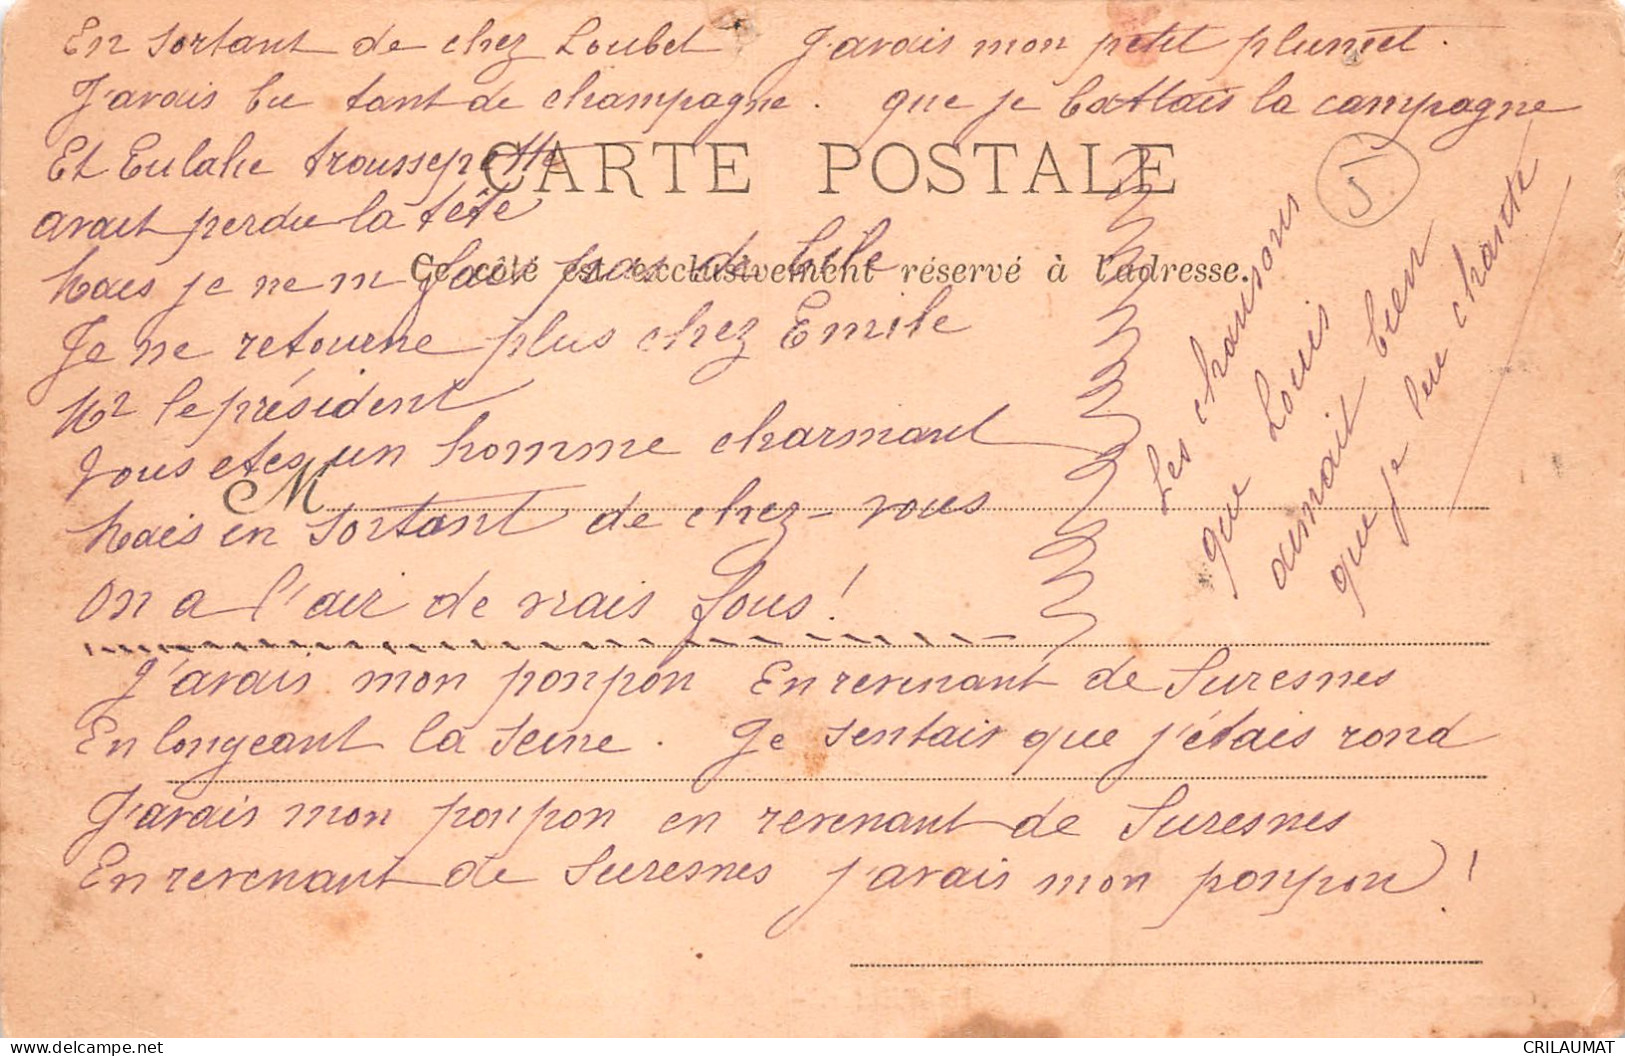 En sortant de chez Loubet J'avais mon petit plumet.
J'avais bu tant de champagne. que je battais la campagne
Et Eulalie troussepette
CARTE POSTALE
J
avait perdu la tête
Mais je ne m'fais pas de bile
Ce côté est exclusivement réservé à l'adresse.
Je ne retourne plus chez Emile
Mr le président
Vous etes un homme charmant
M
Mais en sortant de chez-vous
On a l'air de vrais fous!
J'avais mon ponpon En revenant de Suresnes
En longeant la Seine. Je sentais que j'étais rond
J'avais mon ponpon en revenant de Suresnes
En revenant de Suresnes j'avais mon ponpon!
Les chansons
que Louis
aimait bien
que je lui chante
CRILAUMAT